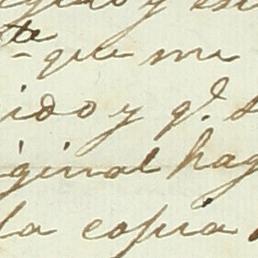 te que me
ido y qe.
iginal hag
la copia